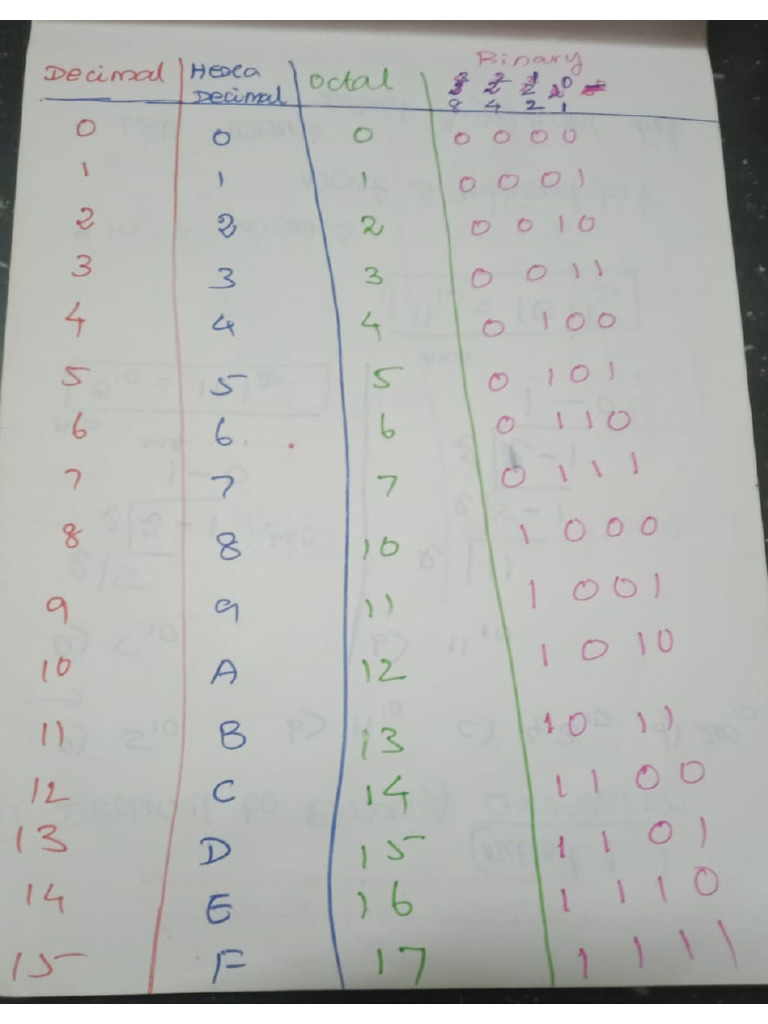 Binary
Decimal Hexa Octal 2³ 2² 2¹ 2⁰
Decimal 8 4 2 1
0 0 0 0 0 0 0
1 1 1 0 0 0 1
2 2 2 0 0 1 0
3 3 3 0 0 1 1
4 4 4 0 1 0 0
5 5 5 0 1 0 1
6 6 6 0 1 1 0
7 7 7 0 1 1 1
8 8 10 1 0 0 0
9 9 11 1 0 0 1
10 A 12 1 0 1 0
11 B 13 1 0 1 1
12 C 14 1 1 0 0
13 D 15 1 1 0 1
14 E 16 1 1 1 0
15 F 17 1 1 1 1